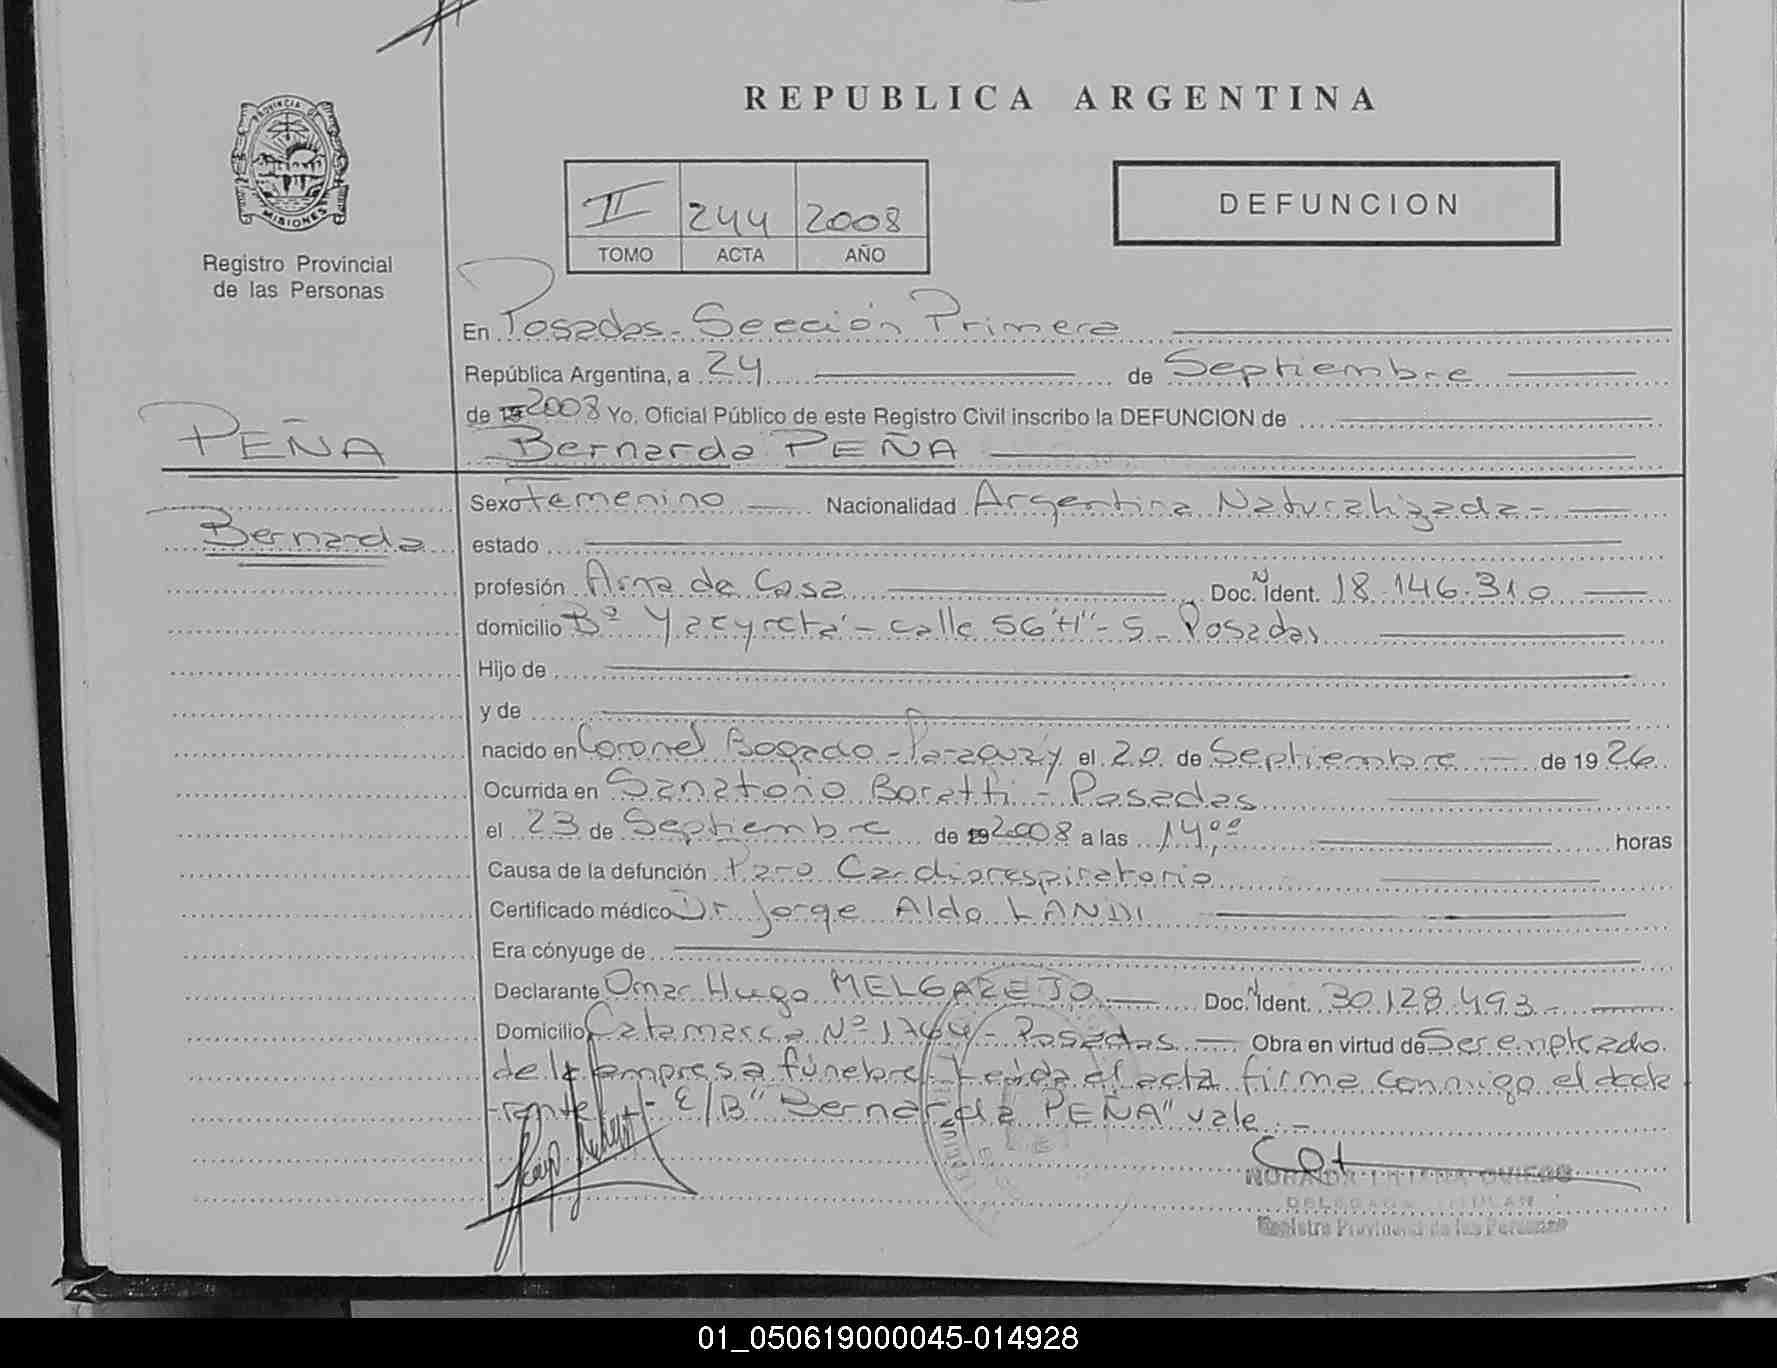 REPUBLICA ARGENTINA
PROVINCIA DE
MISIONES
Registro Provincial
de las Personas
II 244 2008
TOMO ACTA AÑO
DEFUNCION
En Posadas - Sección Primera
República Argentina, a 24 de Septiembre
de 19 2008 Yo, Oficial Público de este Registro Civil inscribo la DEFUNCION de
PEÑA
Bernarda PEÑA
Bernarda
Sexo Femenino Nacionalidad Argentina Naturalizada -
estado
profesión Ama de Casa Doc. N Ident. 18.146.310
domicilio Bº Yacyretá - calle 56 "H" - 5 - Posadas
Hijo de
y de
nacido en Coronel Bogado - Paraguay el 20 de Septiembre de 1926
Ocurrida en Sanatorio Boratti - Posadas
el 23 de Septiembre de 19 2008 a las 14,00 horas
Causa de la defunción Paro Cardiorespiratorio
Certificado médico Dr. Jorge Aldo LANDI
Era cónyuge de
Declarante Omar Hugo MELGAREJO Doc. N Ident. 30.128.493 -
Domicilio Catamarca Nº 1764 - Posadas Obra en virtud de Ser empleado
de la empresa fúnebre - Leída el acta firma conmigo el decla
rante - E/B "Bernarda PEÑA" vale . -
OVIEDO
DELEGADA TITULAR
Registro Provincial de las Personas
01_050619000045-014928